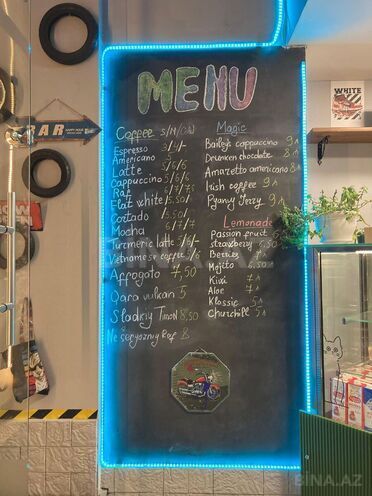 MENU
Coffee S/M/
Espresso 3/4/-
Americano
Latte 5/6/5
Cappuccino 5/6/5
Raf 6/7/7,5
Flat white /5,50/
Cortado /5.50/
Mocha 6/7/7
Turmeric latte 5/6/-
Vietnamese coffee 5/6
Affogato 7,50
Qara vulkan 5
Sladkiy Timon 8,50
Ne seryoznıy Raf 8
Magic
Bailey's cappuccino 9₼
Drunken chocolate 8₼
Amaretto americano 8₼
Irish coffee 9₼
Pyanıy Jerry 9₼
Lemonade
Passion fruit 6
Strawberry 6,50
Berries
Mojito 6,50
Kiwi 7₼
Aloe 7₼
Klassic 5₼
Churchill 5₼
BAR
WHITE
BINA.AZ